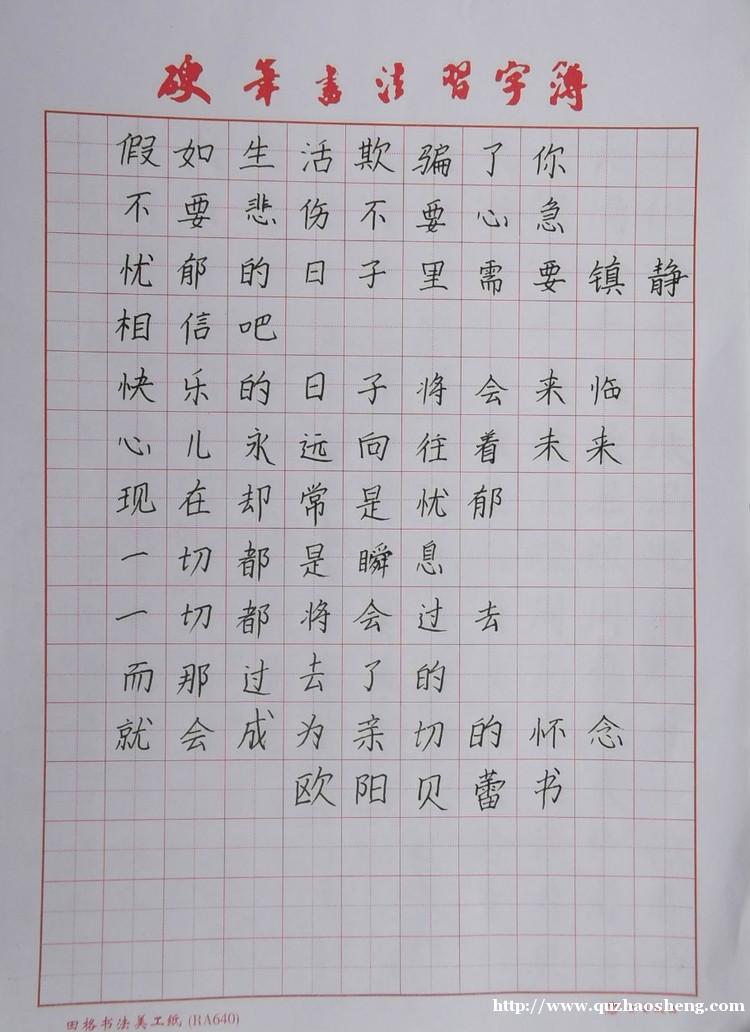 硬笔书法习字簿
假如生活欺骗了你
不要悲伤不要心急
忧郁的日子里需要镇静
相信吧
快乐的日子将会来临
心儿永远向往着未来
现在却常是忧郁
一切都是瞬息
一切都将会过去
而那过去了的
就会成为亲切的怀念
欧阳贝蕾书
田格书法美工纸(RA640)
http://www.quzhaosheng.com